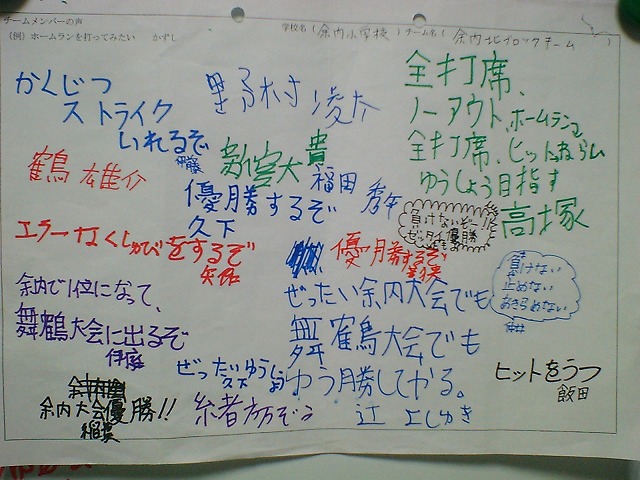 チームメンバーの声
学校名（余内小学校）チーム名（余内北ブロックチーム）
（例）ホームランを打ってみたい　かずし
かくじつ
ストライク
いれるぞ
伊藤
野村 凌太
全打席、
ノーアウト、ホームランか
全打席、ヒットをねらい
ゆうしょう目指す
高塚
鶴 雄介
新宮大貴
福田 秀午
優勝するぞ
久下
負けないぞー!!
ゼッタイ優勝
エラーなくしゅびをするぞ
優勝するぞ
負けない
止めない
あきらめない
余内で1位になって、
舞鶴大会に出るぞ
伊庭
ぜったい余内大会でも
舞鶴大会でも
ゆう勝してやる。
辻 よしゆき
ぜったいゆうしょう
久下
ヒットをうつ
飯田
余内大会優勝!!
稲葉